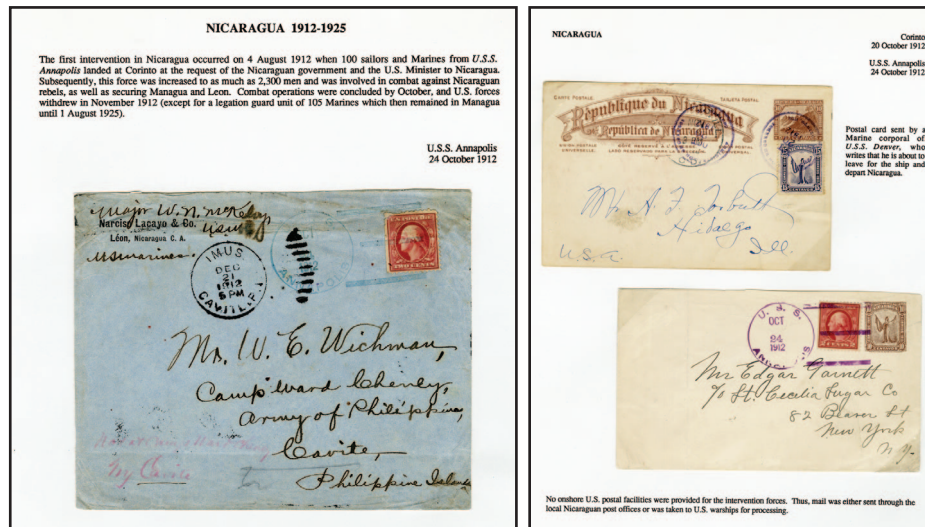 NICARAGUA 1912-1925
The first intervention in Nicaragua occurred on 4 August 1912 when 100 sailors and Marines from U.S.S.
Annapolis landed at Corinto at the request of the Nicaraguan government and the U.S. Minister to Nicaragua.
Subsequently, this force was increased to as much as 2,300 men and was involved in combat against Nicaraguan
rebels, as well as securing Managua and Leon. Combat operations were concluded by October, and U.S. forces
withdrew in November 1912 (except for a legation guard unit of 105 Marines which then remained in Managua
until 1 August 1925).
U.S.S. Annapolis
24 October 1912
Major W. N. McKelvy
Narciso Lacayo & Co.
Léon, Nicaragua C. A.
US Marines
IMUS
DEC
21
1912
5 PM
CAVITE, P.I.
TWO CENTS
Mr. W. E. Wichman,
Camp Ward Cheney,
Army of Philippines,
Cavite,
Philippine Islands
NICARAGUA
Corinto
20 October 1912
U.S.S. Annapolis
24 October 1912
CARTE POSTALE
TARJETA POSTAL
République du Nicaragua
República de Nicaragua
UNION POSTALE
UNIVERSELLE.
CÔTÉ RÉSERVÉ À L'ADRESSE
LADO RESERVADO PARA LA DIRECCION
UNION POSTAL
UNIVERSAL.
Postal card sent by a
Marine corporal of
U.S.S. Denver, who
writes that he is about to
leave for the ship and
depart Nicaragua.
15 15
Mr. A. F.
Hidalgo
Ill.
U.S.A.
U. S. S.
OCT
24
1912
ANNAPOLIS
Mr Edgar Garnett
c/o St. Cecilia Sugar Co
82 Beaver St
New York
N.Y.
No onshore U.S. postal facilities were provided for the intervention forces. Thus, mail was either sent through the
local Nicaraguan post offices or was taken to U.S. warships for processing.